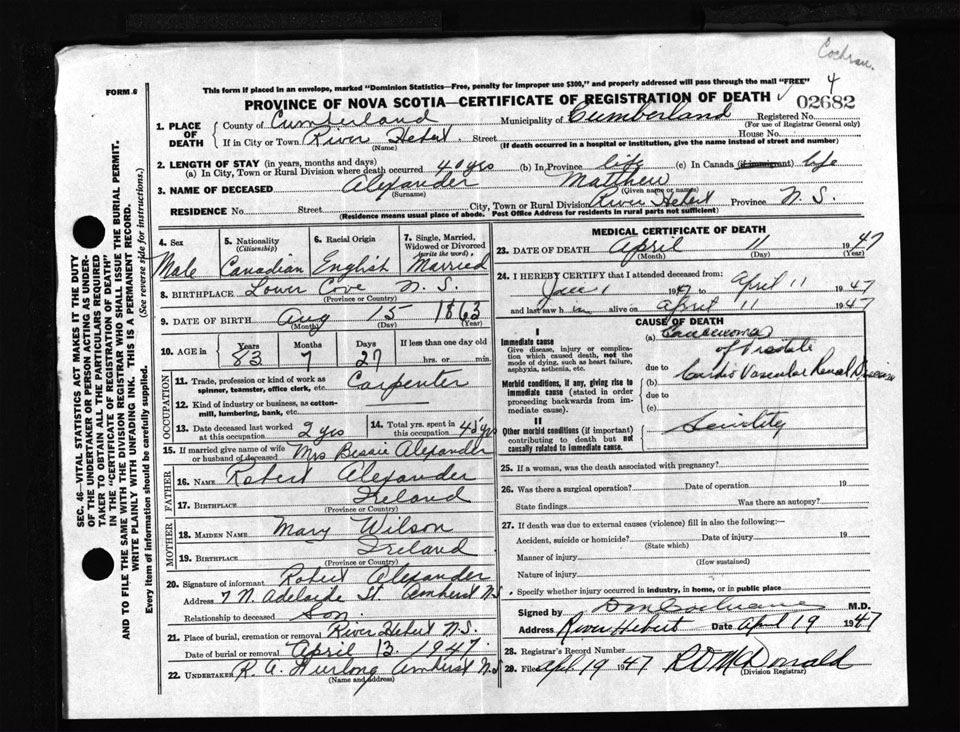 Cochran.
4
FORM 6
This form if placed in an envelope, marked "Dominion Statistics—Free, penalty for improper use $300," and properly addressed will pass through the mail "FREE"
PROVINCE OF NOVA SCOTIA—CERTIFICATE OF REGISTRATION OF DEATH
02682
1. PLACE OF DEATH County of Cumberland Municipality of Cumberland Registered No.
(For use of Registrar General only)
If in City or Town River Hebert Street House No.
(Name) (If death occurred in a hospital or institution, give the name instead of street and number)
2. LENGTH OF STAY (in years, months and days)
(a) In City, Town or Rural Division where death occurred 40 yrs (b) In Province life (c) In Canada (if immigrant) life
3. NAME OF DECEASED Alexander Matthew
(Surname) (Given name or names)
RESIDENCE No. Street City, Town or Rural Division River Hebert Province N. S.
(Residence means usual place of abode. Post Office Address for residents in rural parts not sufficient)
4. Sex Male
5. Nationality (Citizenship) Canadian
6. Racial Origin English
7. Single, Married, Widowed or Divorced (write the word) Married
8. BIRTHPLACE Lower Cove N. S.
(Province or Country)
9. DATE OF BIRTH Aug 15 1863
(Month) (Day) (Year)
10. AGE in Years Months Days If less than one day old
83 7 27 hrs. or min.
OCCUPATION
11. Trade, profession or kind of work as spinner, teamster, office clerk, etc. Carpenter
12. Kind of industry or business, as cotton-mill, lumbering, bank, etc.
13. Date deceased last worked at this occupation 2 yrs
14. Total yrs. spent in this occupation 45 yrs
15. If married give name of wife or husband of deceased Mrs Bessie Alexander
FATHER
16. NAME Robert Alexander
17. BIRTHPLACE Ireland
(Province or Country)
MOTHER
18. MAIDEN NAME Mary Wilson
19. BIRTHPLACE Ireland
(Province or Country)
20. Signature of informant Robert Alexander
Address 7 N Adelaide St. Amherst NS
Relationship to deceased Son
21. Place of burial, cremation or removal River Hebert N.S.
Date of burial or removal April 13. 1947.
22. UNDERTAKER R. A. Amherst N.S
(Name and address)
MEDICAL CERTIFICATE OF DEATH
23. DATE OF DEATH April 11 1947
(Month) (Day) (Year)
24. I HEREBY CERTIFY that I attended deceased from:
Jan 1 1947 to April 11 1947
and last saw him alive on April 11 1947
CAUSE OF DEATH
I
Immediate cause
Give disease, injury or complication which caused death, not the mode of dying, such as heart failure, asphyxia, asthenia, etc.
(a) Carcinoma of Prostate
due to
Morbid conditions, if any, giving rise to immediate cause (stated in order proceeding backwards from immediate cause).
(b) Cardio Vascular Renal Disease
due to
(c)
II
Other morbid conditions (if important) contributing to death but not causally related to immediate cause.
Senility
25. If a woman, was the death associated with pregnancy?
26. Was there a surgical operation? Date of operation 19
State findings Was there an autopsy?
27. If death was due to external causes (violence) fill in also the following:—
Accident, suicide or homicide? Date of injury 19
(State which)
Manner of injury
(How sustained)
Nature of injury
Specify whether injury occurred in industry, in home, or in public place
Signed by D M Cochrane M.D.
Address River Hebert Date April 19 1947
28. Registrar's Record Number
29. Filed April 19 1947
McDonald
(Division Registrar)
SEC. 46—VITAL STATISTICS ACT MAKES IT THE DUTY
OF THE UNDERTAKER OR PERSON ACTING AS UNDERTAKER
TO OBTAIN ALL THE PARTICULARS REQUIRED
IN THE "CERTIFICATE OF REGISTRATION OF DEATH"
AND TO FILE THE SAME WITH THE DIVISION REGISTRAR WHO SHALL ISSUE THE BURIAL PERMIT.
WRITE PLAINLY WITH UNFADING INK. THIS IS A PERMANENT RECORD.
Every item of information should be carefully supplied. (See reverse side for instructions.)